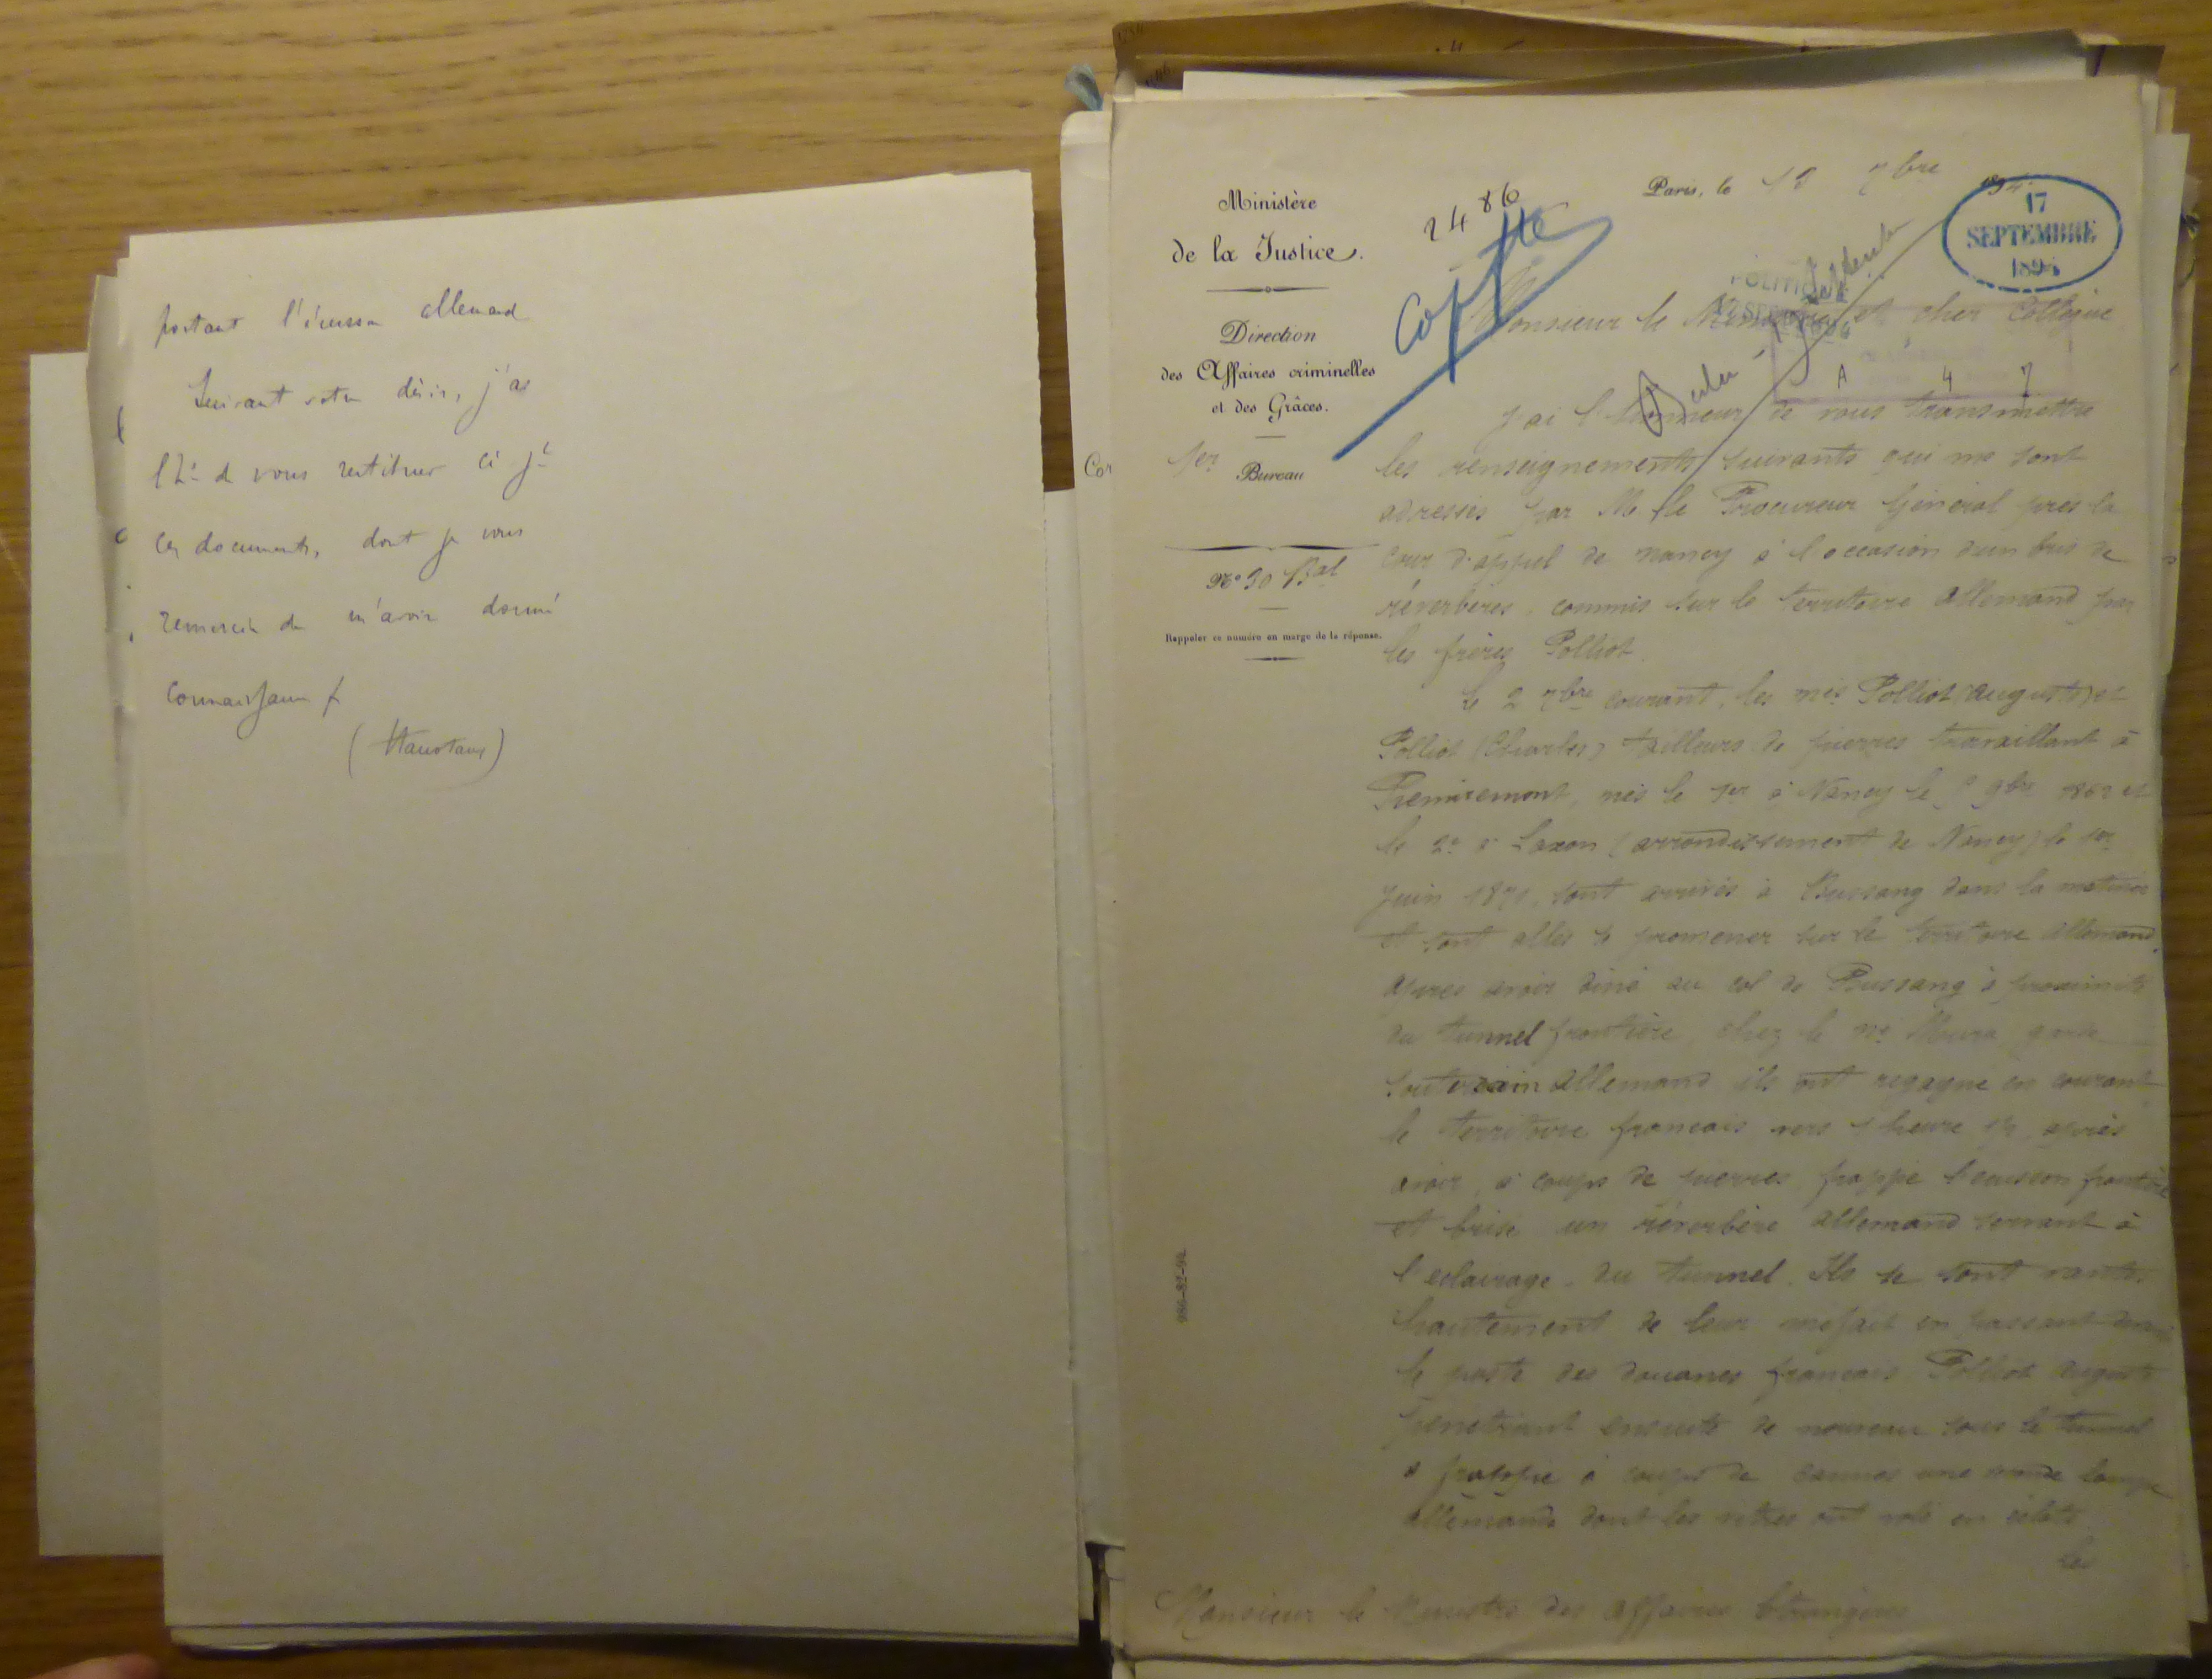 portant l'écusson allemand
Suivant votre désir, j'ai
l'hr de vous restituer ci jt
ces documents, dont je vous
remercie de m'avoir donné
connaissance ./.
(Hanotaux)
Ministère
de la Justice.
Direction
des Affaires criminelles
et des Grâces.
1er Bureau
No 30 Bal
Rappeler ce numéro en marge de la réponse.
2486
Paris, le 7bre
17
SEPTEMBRE
1894
POLITIQUE
A 4 7
Monsieur le Ministre et cher Collègue
J'ai l'honneur de vous transmettre
les renseignements suivants qui me sont
adressés par M. le Procureur Général près la
cour d'appel de Nancy à l'occasion d'un bris de
réverbères, commis sur le territoire allemand par
les frères Polliot.
Le 2 7bre courant, les nés Polliot (Auguste) et
Polliot (Charles) tailleurs de pierres travaillant à
Remiremont, nés le 1er à Nancy le 9bre et
le 2e à Laxou (arrondissement de Nancy) le 1er
juin 1871, sont arrivés à Bussang dans la matinée
et sont allés se promener sur le territoire allemand.
Après avoir diné au col de Bussang à proximité
du tunnel frontière chez le né garde
souterrain allemand ils ont regagné en courant
le territoire français vers 1 heure 1/2 après
avoir, à coups de pierres frappé l'écusson frontière
et brisé un réverbère allemand servant à
l'éclairage du tunnel. Ils se sont vantés
hautement de leur méfait en passant devant
le poste des douanes français Polliot Auguste
pénétrant ensuite de nouveau sous le tunnel
a frappé à coups de cannes une lampe
allemande dont les vitres ont volé en éclats.
Les
Monsieur le Ministre des Affaires Etrangères
986-82-92